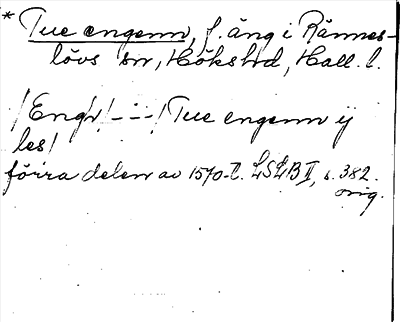 * Tue engenn, f. äng i Rännes-
lövs sn, Höks hd, Hall. l.
/Engr/ - - - / Tue engenn ij
les/
förra delen av 1570-t. LSLB II, s. 382.
orig.